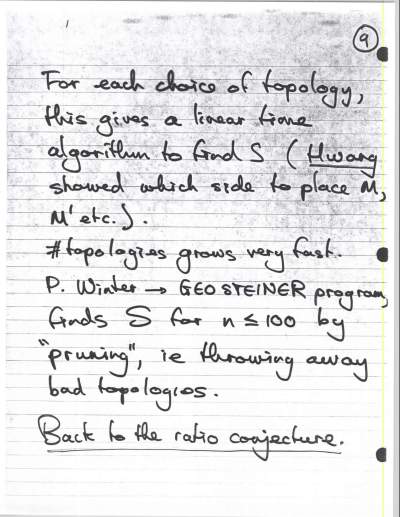 9
For each choice of topology,
this gives a linear time
algorithm to find S (Hwang
showed which side to place M,
M' etc.).
#topologies grows very fast.
P. Winter → GEOSTEINER program,
finds S for n ≤ 100 by
"pruning", ie throwing away
bad topologies.
Back to the ratio conjecture.